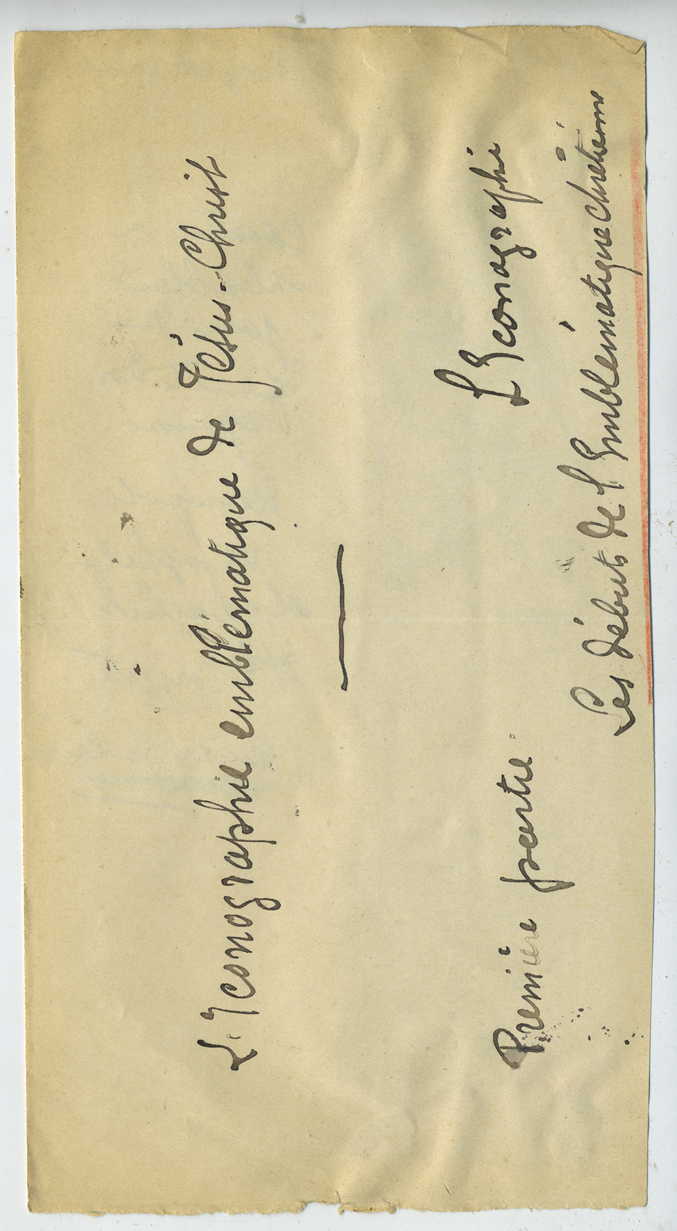 L'Iconographie emblématique de Jésus-Christ
Première partie - L'Iconographi
Les débuts de l'Emblématique chrétienne